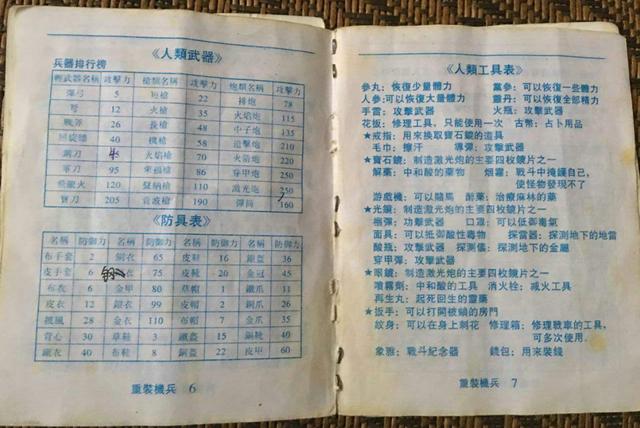 《人類武器》
兵器排行榜
輕武器名稱 攻擊力 槍類名稱 攻擊力 炮類名稱 攻擊力
彈弓 5 短槍 22 排炮 78
弩 12 火槍 35 火焰炮 115
戰斧 26 長槍 48 中子炮 135
回旋鏢 40 機槍 58 追擊炮 210
鋼刀 火焰槍 70 火箭炮 220
軍刀 95 來福槍 86 穿甲炮 250
120 聲納槍 110 激光炮 250
寶刀 205 音波槍 190 彈筒 160
《防具表》
名稱 防御力 名稱 防御力 名稱 防御力 名稱 防御力
布手套 2 鋼衣 65 皮鞋 16 銀盔 36
皮手套 6 衣 75 皮靴 20 金冠 45
布衣 6 金甲 80 草帽 1 鐵爪 11
皮衣 12 銀衣 99 皮帽 2 鋼爪 26
披風 28 金衣 110 布帽 7 金爪 35
背心 30 草鞋 3 鐵盔 15 鋼靴 40
鐵衣 40 布鞋 8 銅盔 22 皮甲 60
重裝機兵 6
《人類工具表》
参丸：恢復少量體力 黨参：可以恢復一些體力
人参：可以恢復大量體力 靈丹：可以恢復全部精力
手雷：攻擊武器 火瓶：攻擊武器
花扳：修理工具，只能使用一次 古幣：占卜用品
★戒指：用來換取寶石鏡的道具
毛巾：擦汗 導彈：攻擊武器
★寶石鏡：制造激光炮的主要四枚鏡片之一
解藥：中和酸的藥物 烟霧：戰斗中掩護自己，
使怪物發現不了
游戲機：可以賭馬 酔藥：治療麻林的藥
★光鏡：制造激光炮的主要四枚鏡片之一
極彈：攻擊武器 口罩：可以低御毒氣
面具：可以低御酸性毒物 探雷器：探測地下的地雷
酸瓶：攻擊武器 探測儀：探測地下的金屬
穿甲彈：攻擊武器
★眼鏡：制造激光炮的主要四枚鏡片之一
噴霧劑：中和酸的工具 消火栓：减火工具
再生丸：起死回生的靈藥
★扳手：可以打開被鎖的房門
紋身：可以在身上刺花 修理箱：修理戰車的工具，
可多次使用。
象雅：戰斗紀念器 錢包：用來裝錢
重裝機兵 7